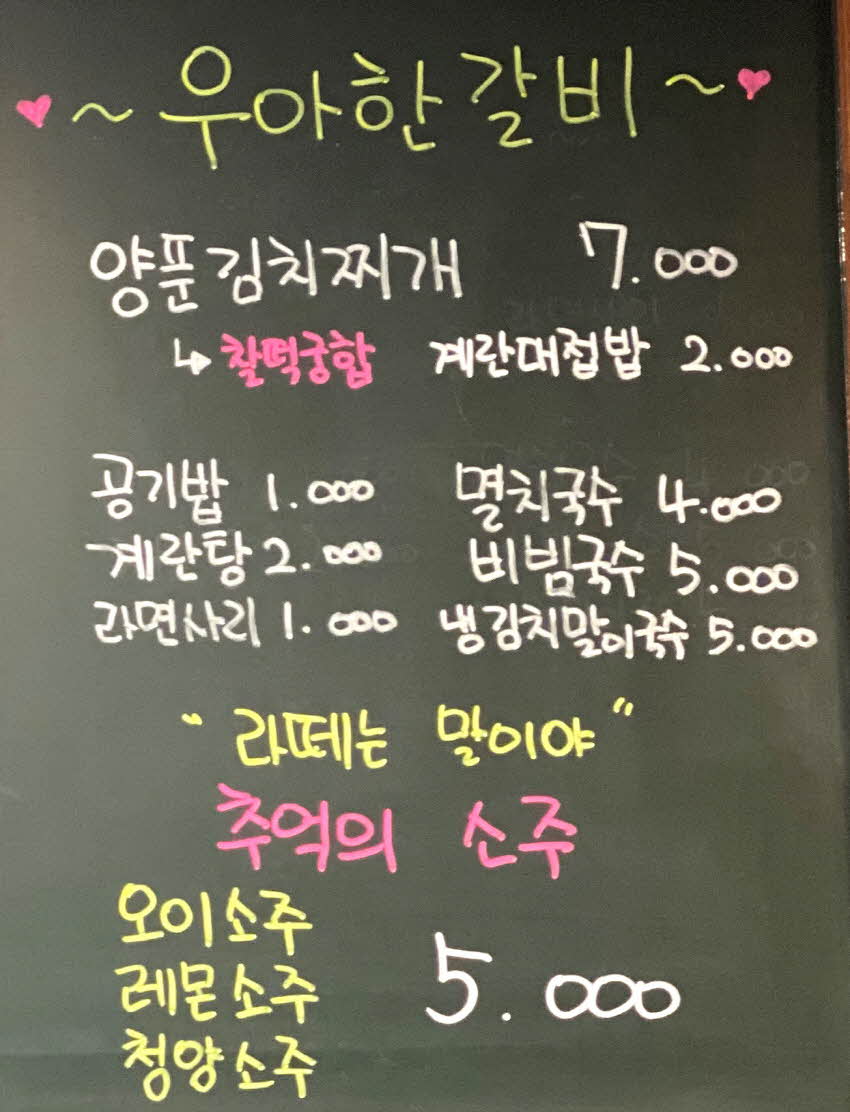 ♥~우아한갈비~♥
양푼김치찌개 7.000
↳ 찰떡궁합 계란대접밥 2.000
공기밥 1.000 멸치국수 4.000
계란탕 2.000 비빔국수 5.000
라면사리 1.000 냉김치말이국수 5.000
"라떼는 말이야"
추억의 소주
오이소주
레몬소주 5.000
청양소주